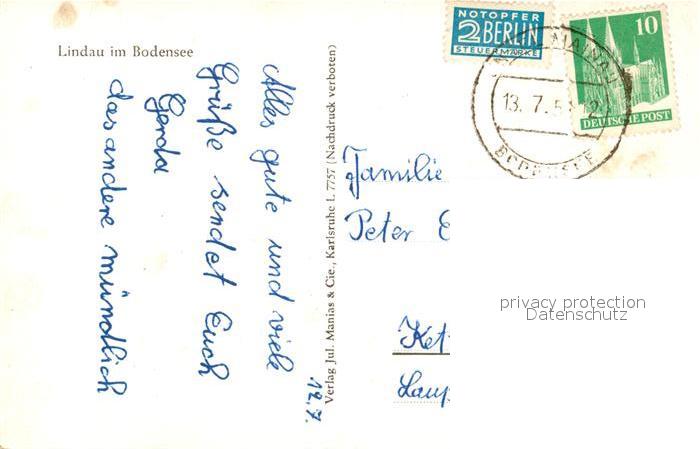 Lindau im Bodensee
12.7.
Alles gute und viele
Grüße sendet Euch
Gerda
das andere mündlich
Verlag Jul. Manias & Cie., Karlsruhe L 7757 (Nachdruck verboten)
NOTOPFER
2 BERLIN
STEUERMARKE
10
DEUTSCHE POST
MAINAU
13. 7. 5
BODENSEE
Familie
Peter
privacy protection
Datenschutz